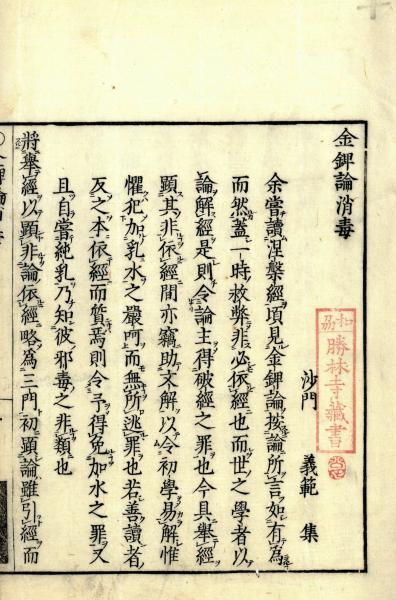 金錍論消毒
沙門 義範 集
余嘗讀涅槃經頃見金錍論按論所言如有爲
而然蓋一時救弊非必依經也而世之學者以
論解經是則令論主得破經之罪也今具舉經
顯其非依經間亦竊助末解以令初學易解惟
懼犯加乳水之嚴呵而無所逃罪也若善讀者
反之本依經而質焉則令予得免加水之罪又
且自嘗純乳乃知彼邪毒之非類也
將舉經以顯非論依經略爲三門初顯論雖引經而
勝林寺藏書